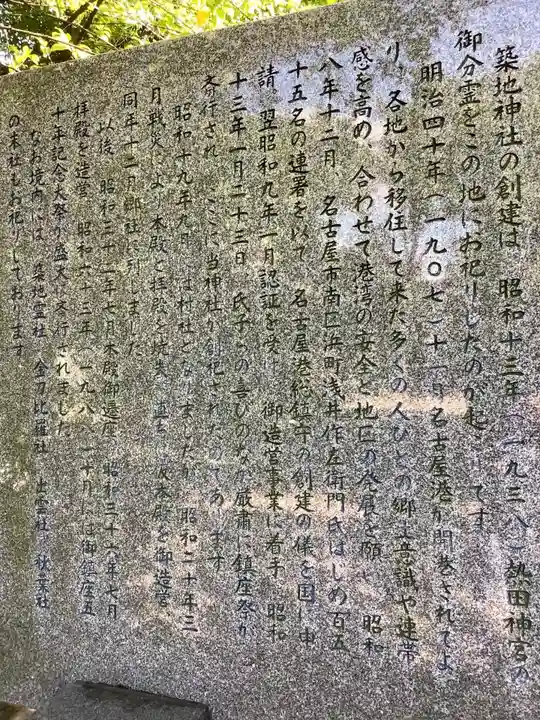 築地神社の創建は、昭和十三年(一九三八)熱田神宮の
御分霊をこの地にお祀りしたのが起 です
明治四十年(一九〇七)十一月名古屋港が開港されてよ
り、各地から移住して来た多くの人びとの郷土意識や連帯
感を高め、合わせて港湾の安全と地区の発展を願 昭和
八年十二月、名古屋市南区浜町浅井作左衛門氏はじめ百五
十五名の連署を以て 名古屋港総鎮守の創建の儀を国に申
請 翌昭和九年一月認証を受け 御造営事業に着手 昭和
十三年一月二十三日 氏子 の喜びのなか厳粛に鎮座祭が
斎行され ここに当神社が創祀されたのであ ます
昭和十九年九月 は村社となりましたが 昭和二十年三
月戦災によ 本殿と拝殿を焼失 直ち 仮本殿を御造営
同年十二月郷社に列しました
以後 昭和 十二年七月本殿御造営 昭和三十六年七月
拝殿を造営 昭和六十三年(一九八 十月には御鎮座五
十年記念大祭が盛大に斎行されました
なお境内には 築地霊社 金刀比羅社 出雲社 秋葉社
の末社もお祀りしております